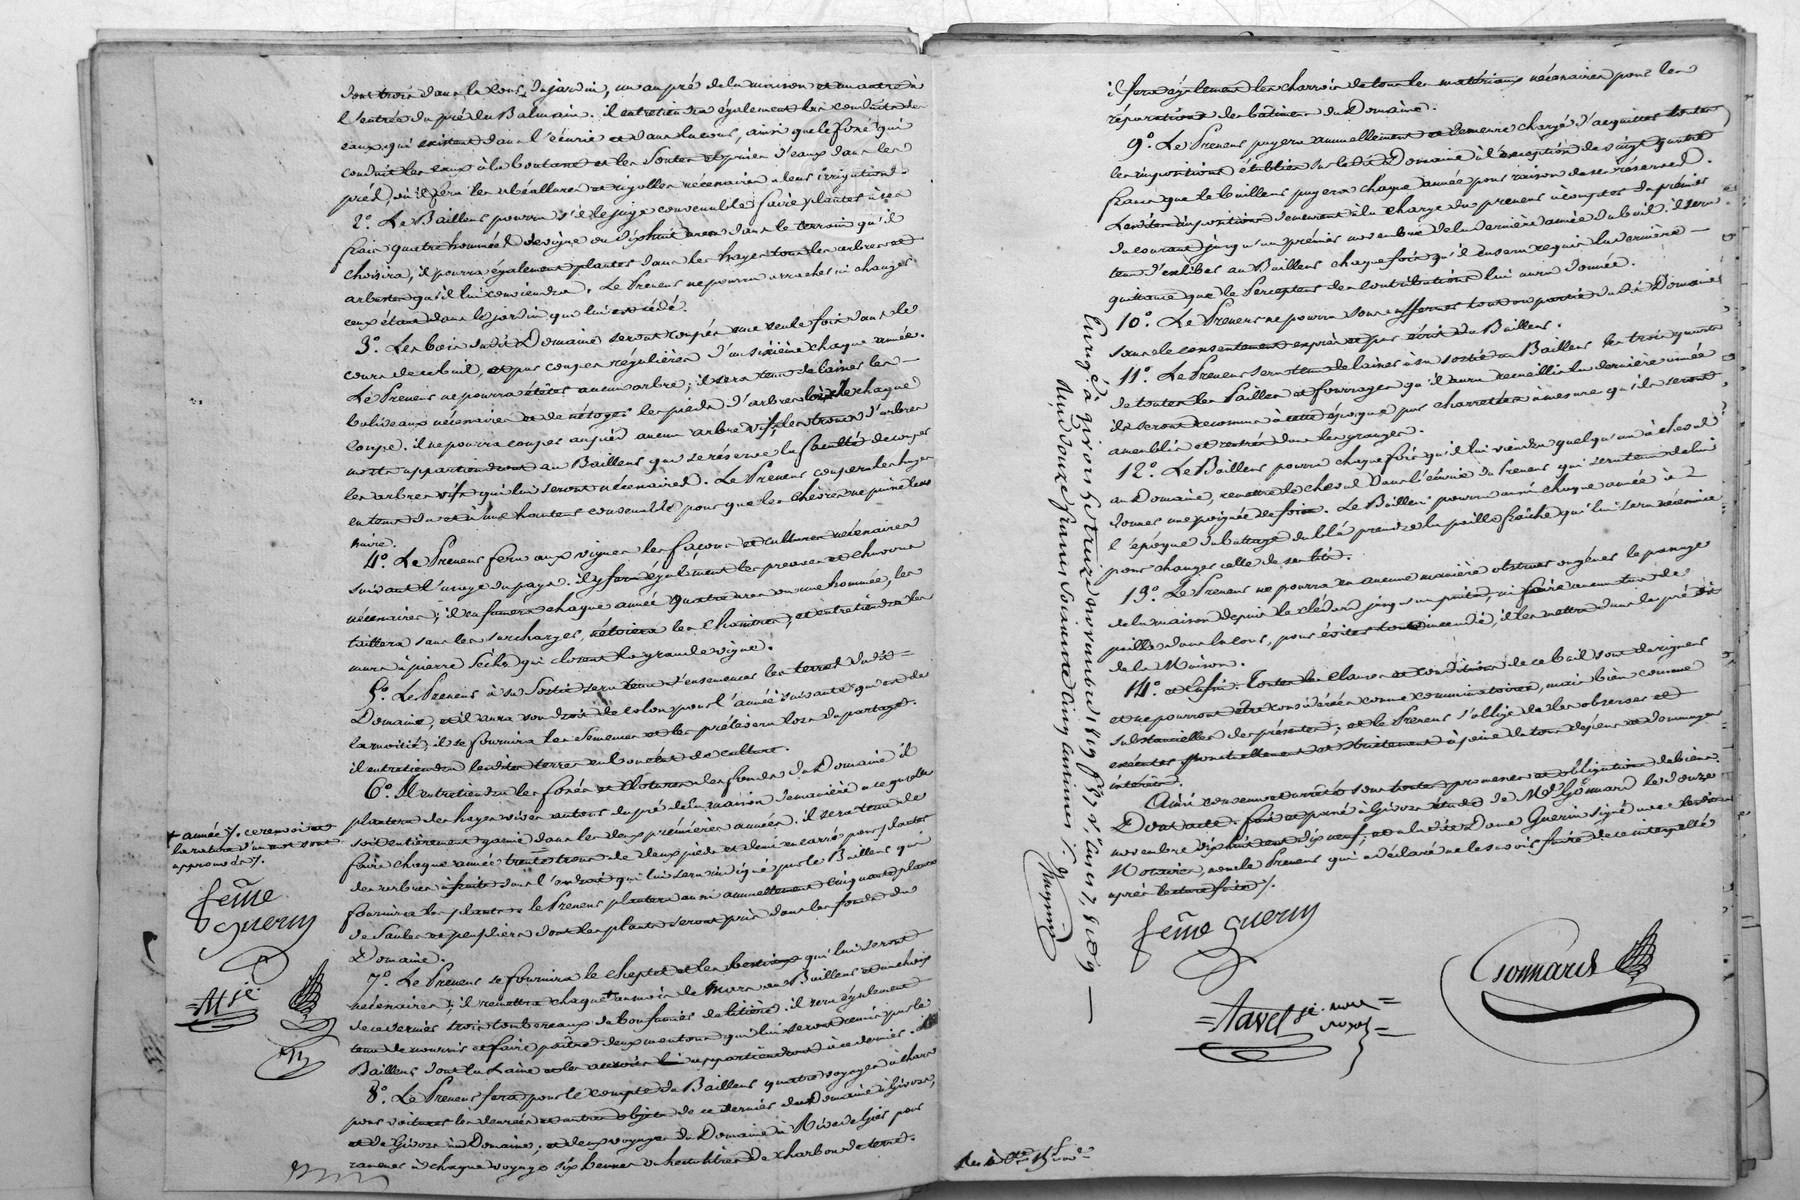 dont trois dans la cour du jardin, un au pré de la maison et un autre à
l'entrée du pré du Balmain. il entretiendra également les conduits des
eaux qui existent dans l'écurie et dans la cour, ainsi que le fossé qui
conduit les eaux à la boutasse et les Soutes et prises d'eaux dans les
prés, où il fera les béallures et rigolles nécessaires à leurs irrigations.
2.º Le Bailleur pourra s'il le juge convenable faire planter à ses
frais quatre hommées de vigne ou dixhuit ares dans le terrain qu'il
choisira, il pourra également planter dans les hayes tous les arbres et
arbustes qu'il lui conviendra. Le Preneur ne pourra arracher ni changer
ceux étant dans le jardin qui lui est cédé.
3.º Les bois dudit Domaine seront coupés une seule fois dans le
cours de ce bail, et par coupes régulières d'un sixième chaque année.
Le Preneur ne pourra étêter aucun arbre; il sera tenu de laisser les
baliveaux nécessaires et de nétoyer les pieds d'arbres lors de chaque
coupe. il ne pourra couper au pied aucun arbre vif, les troncs d'arbres
morts appartiendront au Bailleur qui se réserve la faculté de couper
les arbres vifs qui lui seront nécessaires. Le Preneur coupera les hayes
en tems du et à une hauteur convenable pour que les chèvres ne puissent
nuire.
4.º Le Preneur fera aux vignes les façons et cultures nécessaires
suivant l'usage du pays. il y fera également les provins et chavons
nécessaires; il en fumera chaque année quatre ares ou une hommée, les
taillera sans les surcharger, nétoiera les chaintres, et entretiendra les
murs à pierre sèche qui closent la grande vigne.
5.º Le Preneur à sa Sortie sera tenu d'ensemencer les terres dudit
Domaine, et il aura son droit de colon pour l'année suivante qui est de
la moitié; il se fournira les Semences et les prélèvera lors du partage.
il entretiendra lesdites terres en bon état de culture.
6.º Il entretiendra les fossés et clotures des fonds du Domaine il
plantera des hayes vives autour du pré de la maison de manière à ce qu'elle
soit entièrement garnie dans les deux premières années. il sera tenu de
faire chaque année trente trous de deux pieds et demi en carrés pour planter
des arbres à fruits dans l'endroit qui lui sera indiqué par le Bailleur qui
fournira les plants. le Preneur plantera aussi annuellement cinquante plants
de Saules et peupliers dont les plants seront pris dans les fonds du
Domaine.
7.º Le Preneur se fournira le cheptel et les bestiaux qui lui seront
nécessaires; il remettra chaque + au mois de Mars au Bailleur et au choix
de ce dernier trois tombereaux de bon fumier de litière. il sera également
tenu de nourrir et faire paître deux moutons qui lui seront remis par le
Bailleur dont la Laine et les accrois appartiendront à ce dernier.
8.º Le Preneur fera pour le compte du Bailleur quatre voyages à chars
pour voiturer les denrées et autres objets de ce dernier du Domaine à Givors,
et de Givors au Domaine; et deux voyages du Domaine à Rive de Gier pour
ramener à chaque voyage six bennes ou hectolitres de charbon de terre.
+ année /. ce renvoi et
la rature d'un mot sont
approuvés /.
feme
guerin
=At je
il fera également les charrois de tous les matériaux nécessaires pour les
réparations des bâtimens du Domaine.
9.º Le Preneur payera annuellement et demeure chargé d'acquitter toutes
les impositions établies sur ledit Domaine à l'exception de vingt quatre
francs que le bailleur payera chaque année pour raison de ses réserves.
Lesdites impositions demeurent à la charge du preneur à compter du premier
du courant jusqu'au premier novembre de la dernière année du bail. il sera
tenu d'exhiber au Bailleur chaque fois qu'il en sera requis la dernière
quittance que le Percepteur des contributions lui aura donnée.
10.º Le Preneur ne pourra sous-affermer tout ou partie dudit Domaine
sans le consentement exprès et par écrit du Bailleur.
11.º Le Preneur sera tenu de laisser à sa sortie au Bailleur les trois quarts
de toutes les Pailles et fourrages qu'il aura recueillis la dernière année
ils seront reconnus à cette époque par charretées à mesure qu'ils seront
ameublés et rentrés dans les granges.
12.º Le Bailleur pourra chaque fois qu'il lui viendra quelqu'un à cheval
au Domaine, remettre le cheval dans l'écurie du Preneur qui sera tenu de lui
donner une poignée de foin. Le Bailleur pourra aussi chaque année à
l'époque du battage du blé prendre la paille fraîche qui lui sera nécessaire
pour changer celle de ses lits.
13.º Le Preneur ne pourra en aucune manière obstruer ou gêner le passage
de la maison depuis le clédar jusqu'au puits, ni faire aucun tas de
paille dans la cour, pour éviter tout incendie, il les mettra dans le pré dit
de la Maison.
14.º et Enfin. Toutes les clauses et conditions de ce bail sont de rigueur
et ne pourront être considérées comme comminatoires, mais bien comme
substancielles des présentes; et le Preneur s'oblige de les observer et
exécuter ponctuellement et strictement à peine de tous dépens et dommages
intérêts.
Ainsi convenu et arrêté sous toutes promesses et obligations de biens.
Dont acte. fait et passé à Givors étude de Me Gonnard le douze
novembre dix huit cent dix neuf, et a ladite Dame Guerin signé avec lesdits
Notaires, non le Preneur qui a déclaré ne le savoir faire de ce interpellé
après lecture faite /.
feme guerin
=Navel je. nore =
royal =
Gonnard
Enregé à Givors le treize novembre 1819 fº 87 vº, cases 7, 8 et 9
Reçu douze francs soixante cinq centimes